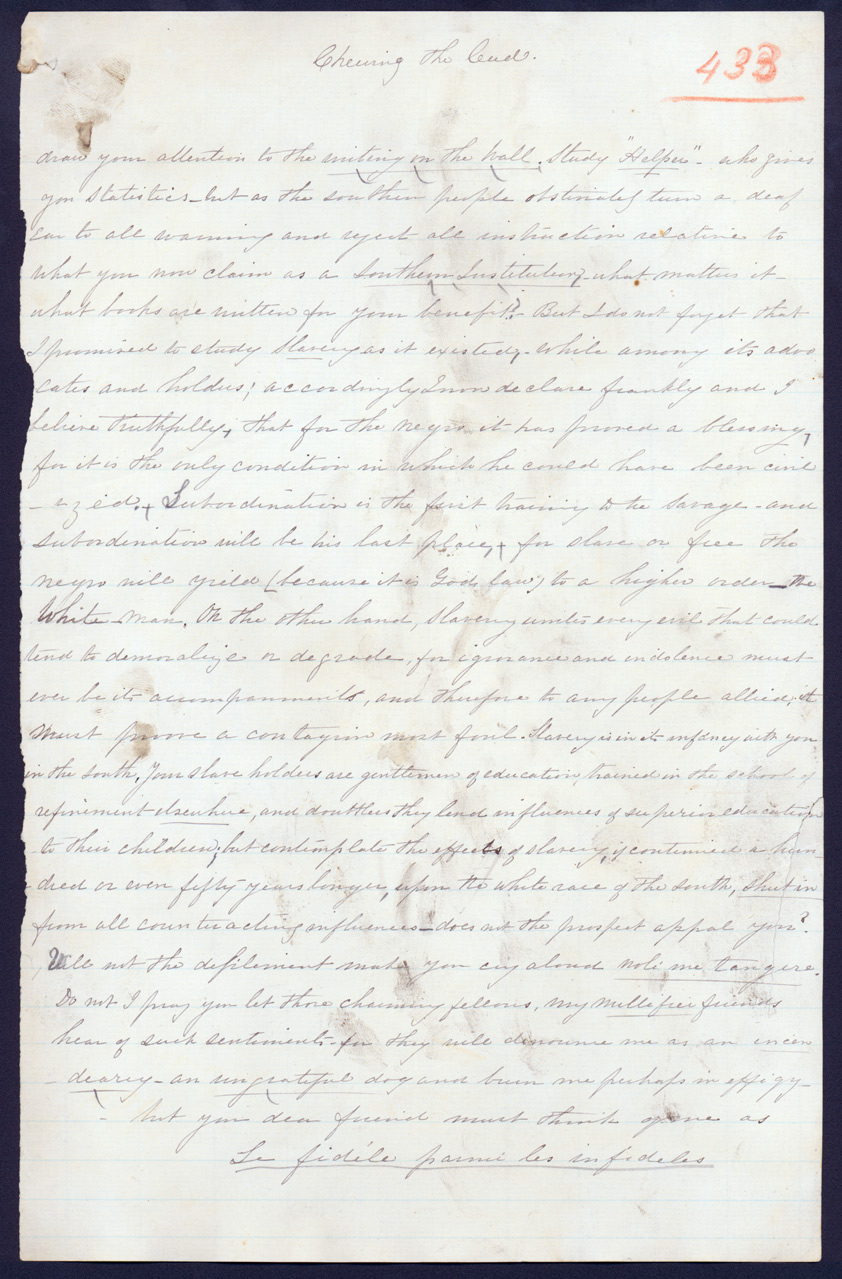 Chewing the Cud.
433
draw your attention to the writing on the Wall. Study "Helper" - who gives
you statistics - but as the southern people obstinately turn a deaf
ear to all warning and reject all instruction relative to
what you now claim as a Southern Institution, - what matters it -
what books are written for your benefit? - But I do not forget that
I promised to study Slavery as it existed, - while among its advo
cates and holders; accordingly I now declare frankly and I
believe truthfully, that for the negro it has proved a blessing,
for it is the only condition in which he could have been civil
- ized. + Subordination is the first training to the Savage - and
subordination will be his last place, + for slave or free the
negro will yield (because it is God law) to a higher order - the
White man. On the other hand, slavery unites every evil that could
tend to demoralize or degrade, for ignorance and indolence must
ever be its accompaniments, and therefore to any people allied, it
must proove a contagion most foul. Slavery is in its infancy with you
in the south. Your slave holders are gentlemen of education, trained in the school of
refinement elsewhere, and doubtless they lend influences of superior education
to their children; but contemplate the effects of slavery, if continued a hun
- dred or even fifty years longer, upon the white race of the south, shut in
from all counteracting influences - does not the prospect appal you?
Will not the defilement make you cry aloud noli me tangere.
Do not I pray you let those charming fellows, my millifier friends
hear of such sentiments for they will denounce me as an incen
- deary - an ungrateful dog and burn me perhaps in effigy -
- but you dear friend must think of me as
Le fidéle parmi les infideles